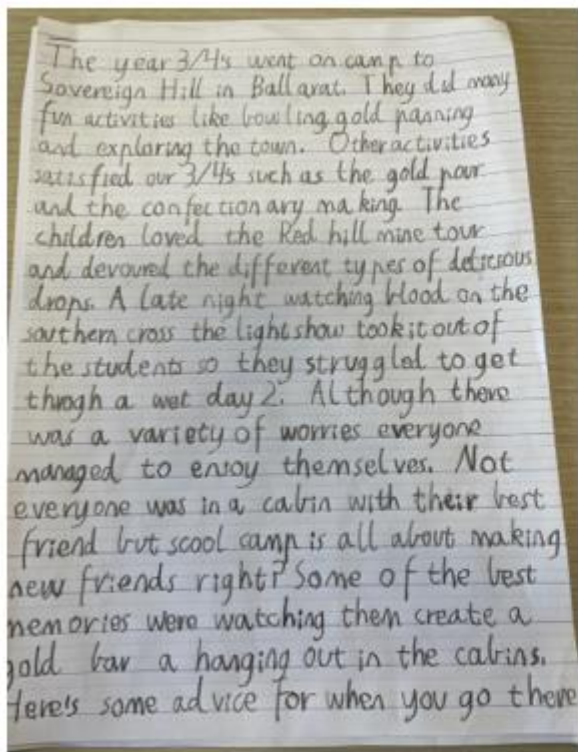 The year 3/4s went on camp to
Sovereign Hill in Ballarat. They did many
fun activities like bowling gold panning
and exploring the town. Other activities
satisfied our 3/4s such as the gold pour
and the confectionary making. The
children loved the Red hill mine tour
and devoured the different types of delicious
drops. A late night watching blood on the
southern cross the light show took it out of
the students so they struggled to get
throgh a wet day 2. Although there
was a variety of worries everyone
managed to enjoy themselves. Not
everyone was in a cabin with their best
friend but scool camp is all about making
new friends right? Some of the best
memories were watching them create a
gold bar a hanging out in the cabins.
Here's some advice for when you go there